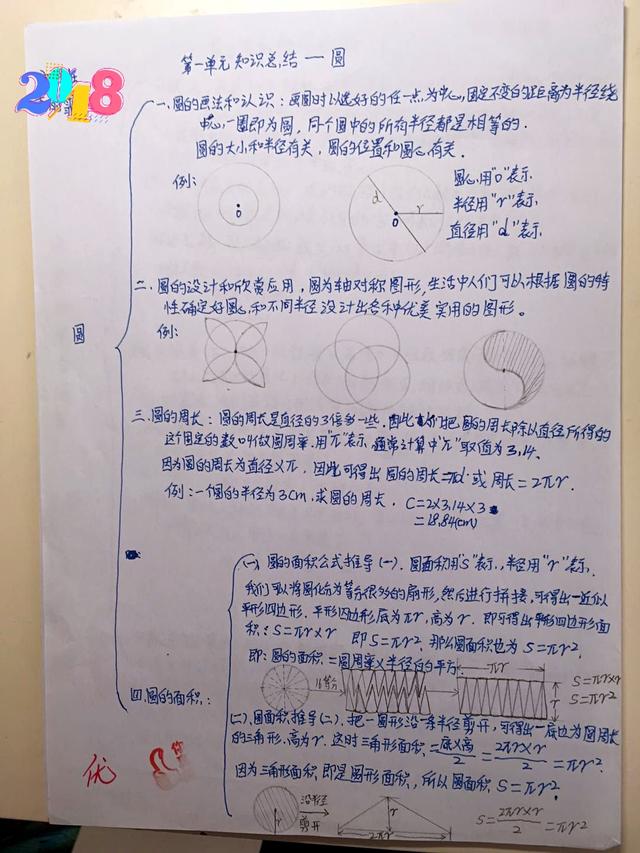 2018
第一单元知识总结——圆
圆
一.圆的画法和认识：画圆时以选好的任一点为中心,固定不变的距离为半径绕
中心一圈即为圆,同个圆中的所有半径都是相等的.
圆的大小和半径有关,圆的位置和圆心有关.
例：
o
d
r
o
圆心用"o"表示
半径用"r"表示
直径用"d"表示
二.圆的设计和欣赏应用,圆为轴对称图形,生活中人们可以根据圆的特
性确定好圆心和不同半径设计出各种优美实用的图形。
例：
三.圆的周长：圆的周长是直径的3倍多一些.因此人们把圆的周长除以直径所得的
这个固定的数叫做圆周率.用"π"表示.通常计算中"π"取值为3.14.
因为圆的周长为直径×π.因此可得出圆的周长=πd或周长=2πr.
例：一个圆的半径为3cm,求圆的周长. C=2×3.14×3
=18.84(cm)
四.圆的面积：
(一).圆的面积公式推导(一).圆面积用"S"表示,半径用"r"表示.
我们可以将圆化分为等分很多的扇形,然后进行拼接,可得出一近似
平形四边形.平形四边形底为πr.高为r.即可得出平形四边形面
积：S=πr×r 即S=πr².那么圆面积也为S=πr².
即：圆的面积=圆周率×半径的平方.
16等分
πr
r
S=πr×r
S=πr²
(二).圆面积推导(二).把一圆形沿一条半径剪开,可得出一底边为圆周长
的三角形.高为r.这时三角形面积=底×高/2=2πr×r/2=πr².
因为三角形面积即是圆形面积,所以圆面积S=πr².
r
沿半径
剪开
r
2πr
S=2πr×r/2=πr²
优